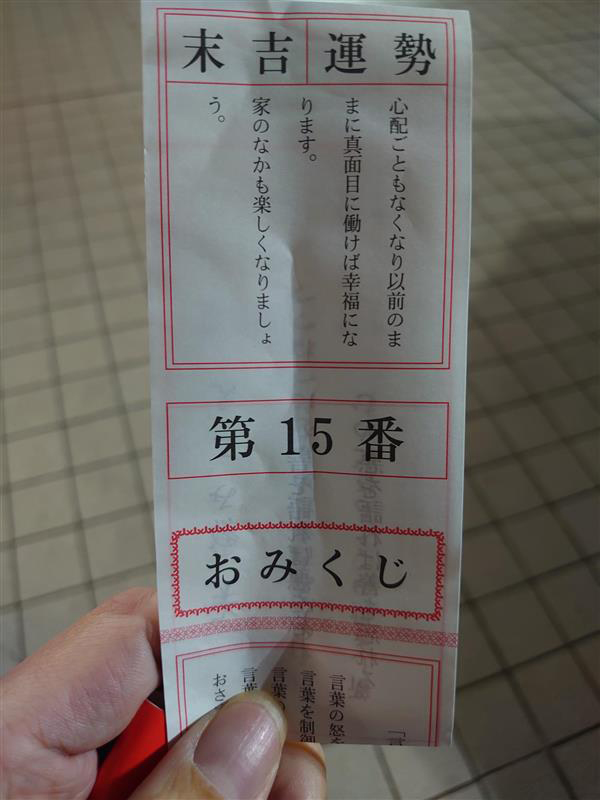 末吉 運勢
心配ごともなくなり以前のま
まに真面目に働けば幸福にな
ります。
家のなかも楽しくなりましょ
う。
第15番
おみくじ
「言
言葉の怒を
言葉を制御
言葉の
言葉
おさ